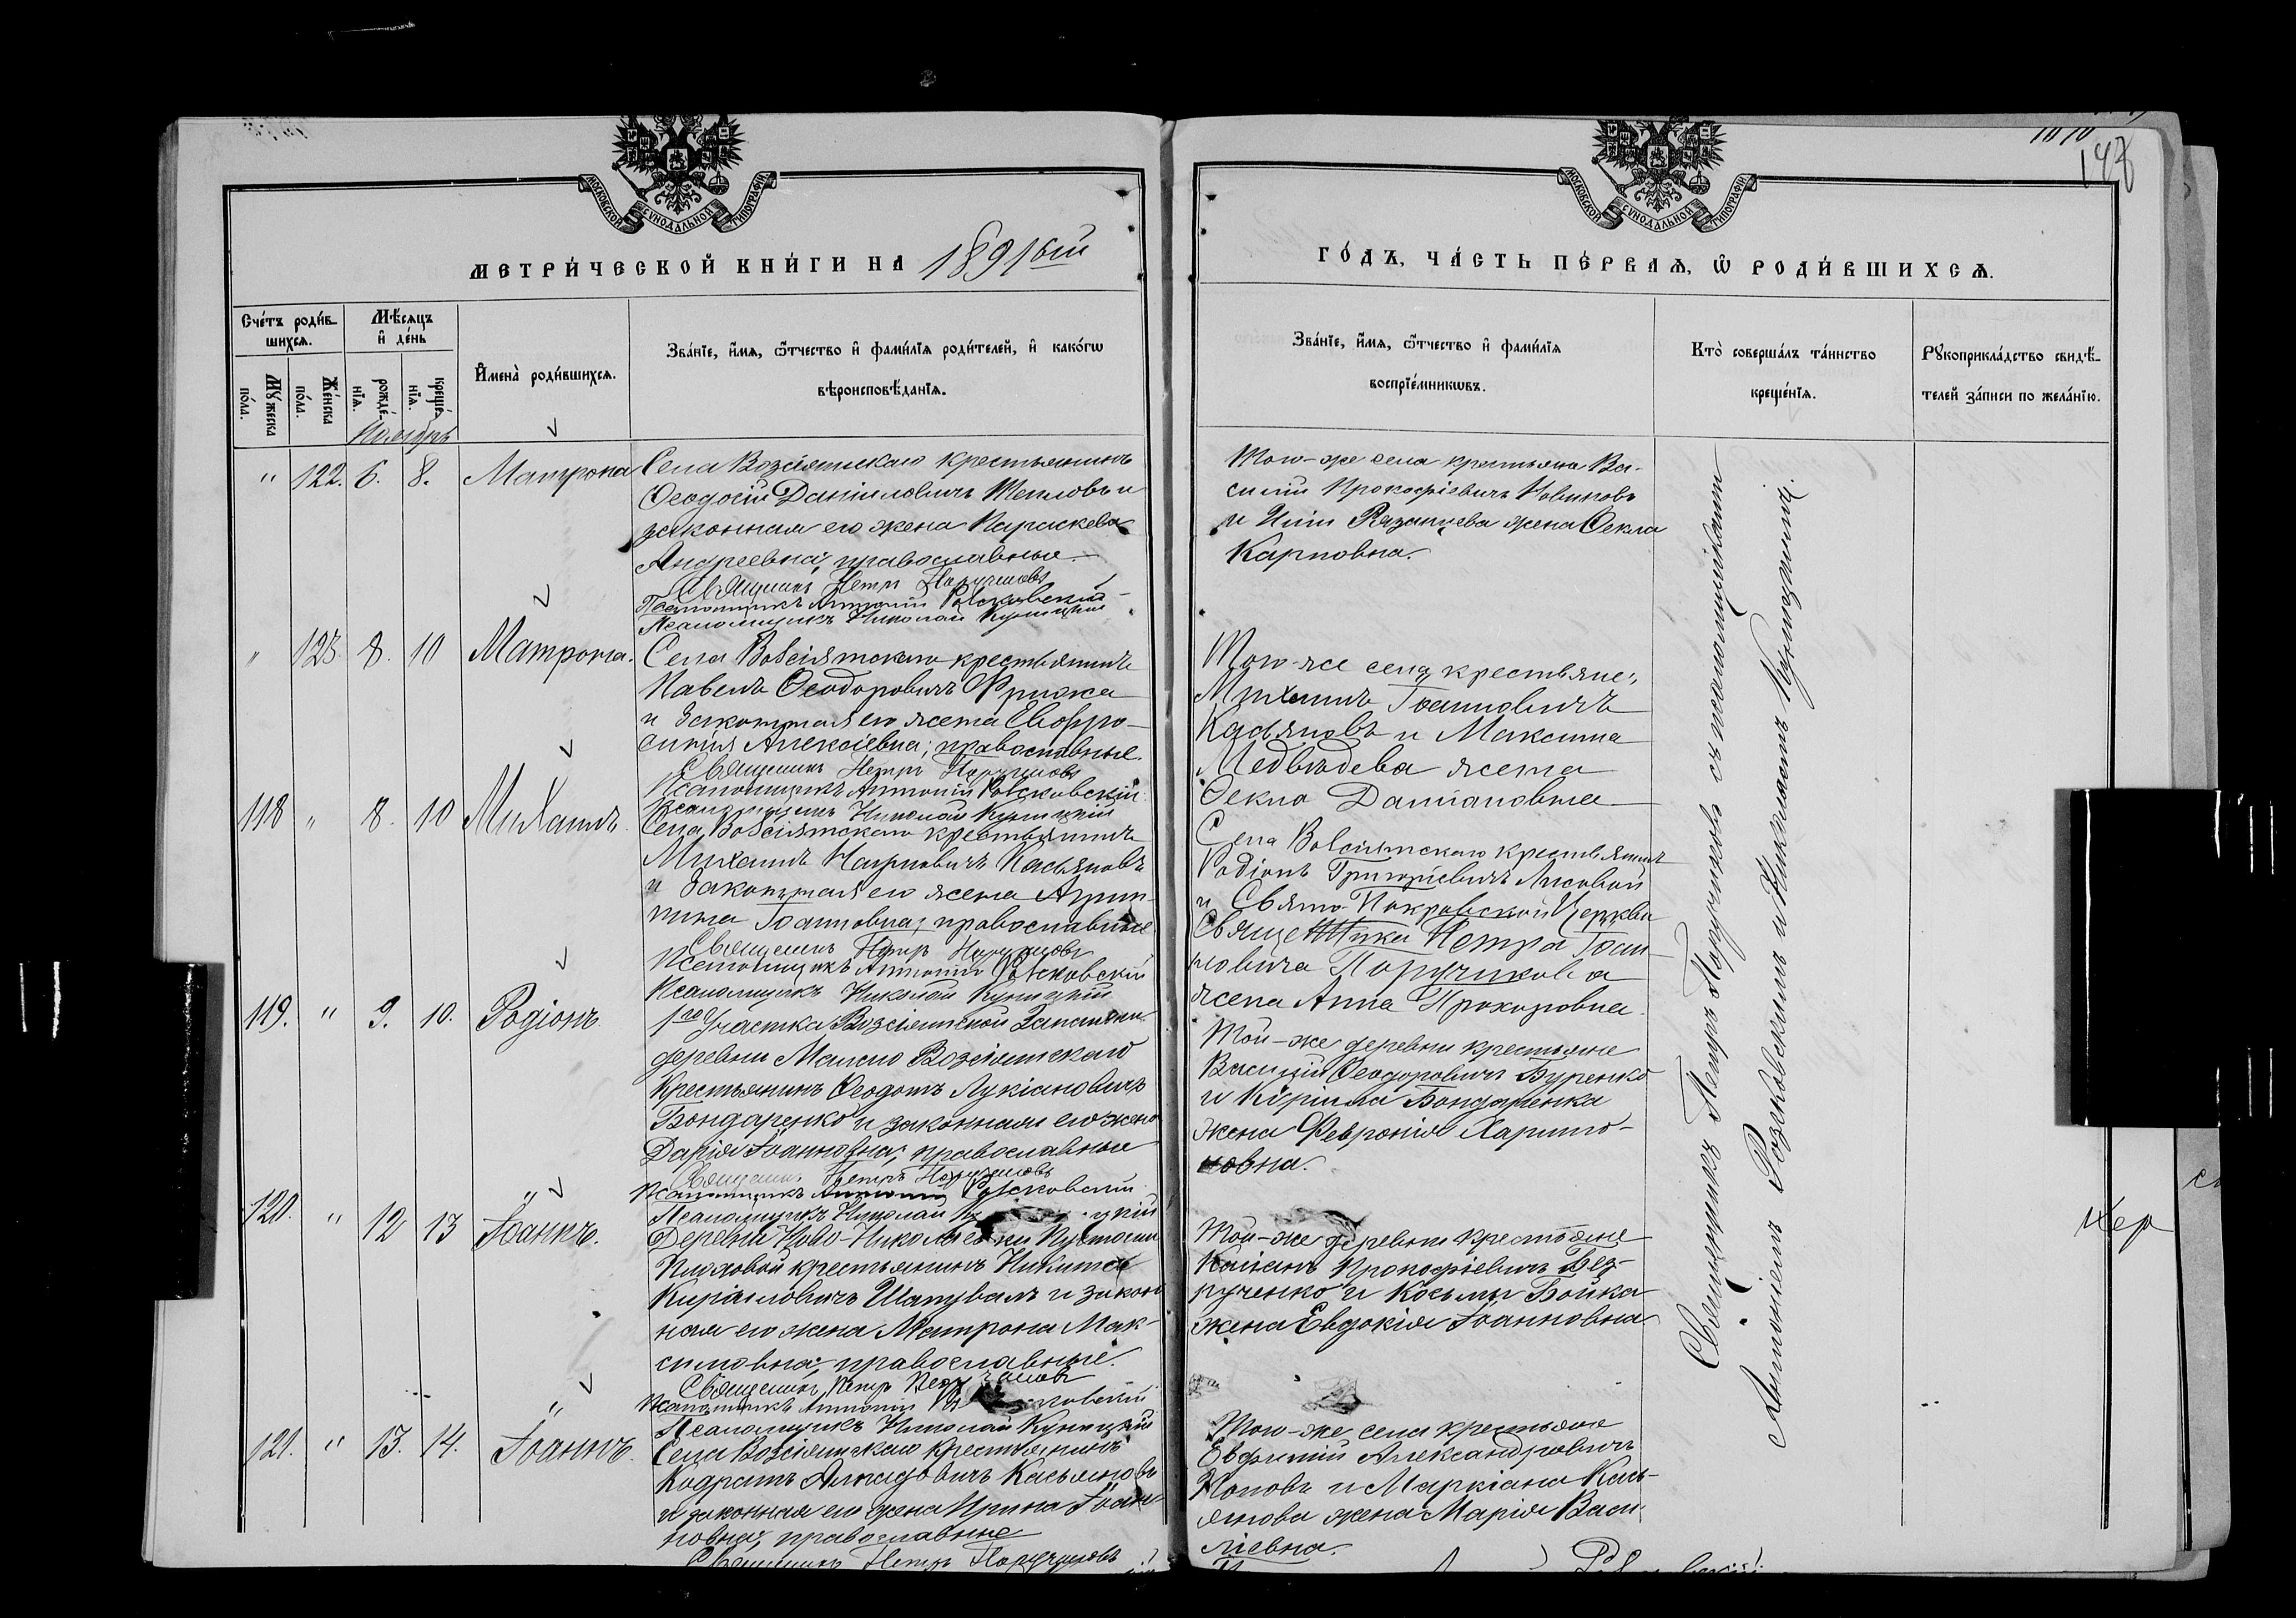 1070
148
МОСКОВСКОЙ СѴНОДАЛЬНОЙ ТИПОГРАФІИ
МОСКОВСКОЙ СѴНОДАЛЬНОЙ ТИПОГРАФІИ
МЕТРИ́ЧЕСКОЙ КНИ́ГИ НА 1891ый
ГО́ДЪ, ЧА́СТЬ ПЕ́РВАѦ, Ѽ РОДИ́ВШИХСѦ.
Сче́тъ роди́в-
шихсѧ.
Мꙋ́жеска
по́ла.
Же́нска
по́ла.
Мѣ́сѧцъ
и҆ де́нь
рожде́-
нїѧ.
креще́-
нїѧ.
И҆мена̀ роди́вшихсѧ.
Зва́нїе, и҆́мѧ, ѻ҆́тчество и҆ фами́лїѧ роди́телей, и҆ како́гѡ
вѣроисповѣ́данїѧ.
Зва́нїе, и҆́мѧ, ѻ҆́тчество и҆ фами́лїѧ
воспрїе́мникѡвъ.
Кто̀ соверша́лъ та́инство
креще́нїѧ.
Рꙋкоприкла́дство свидѣ́-
телей за́писи по жела́нїю.
Ноябрь
" 122. 6. 8. Матрона
Села Возсіятскаго крестьянинъ
Ѳеодосій Даніиловичъ Тепловъ и
законная его жена Параскева
Андреевна; православные.
Священникъ Петръ Поручиковъ
Псаломщикъ Антоній Розсковскій
Псаломщикъ Николай Куницкій
Того-же села крестьяне Ва-
силій Прокофіевичъ Новиковъ
и Рязанцева жена Ѳекла
Карповна.
" 123. 8. 10 Матрона.
Села Возсіятскаго крестьянинъ
Павелъ Ѳеодоровичъ Фрижа
и законная его жена Евфро-
синія Алексіевна; православные.
Священникъ Петръ Поручиковъ
Псаломщикъ Антоній Розсковскій
Псаломщикъ Николай Куницкій
Того-же села крестьяне:
Михаилъ Іоанновичъ
Касьяновъ и Максима
Медвѣдева жена
Ѳекла Даміановна
118 " 8. 10 Михаилъ.
Села Возсіятскаго крестьянинъ
Михаилъ Наумовичъ Касьяновъ
и законная его жена Агрип-
пина Іоанновна; православные
Священникъ Петръ Поручиковъ
Псаломщикъ Антоній Розсковскій
Псаломщикъ Николай Куницкій
Села Возсіятскаго крестьянинъ
Родіонъ Григоріевичъ Лисовый
и Свято-Покровской Церкви
Священника Петра Іоан-
новича Поручикова
жена Анна Прохоровна.
119. " 9. 10. Родіонъ.
1го Участка Возсіятской
деревни Малаго Возсіятскаго
крестьянинъ Ѳеодотъ Лукіановичъ
Бондаренко и законная его жена
Дарія Іоанновна; православные
Священникъ Петръ Поручиковъ
Псаломщикъ Антоній Розсковскій
Псаломщикъ Николай
Той-же деревни крестьяне
Василій Ѳеодоровичъ Буренко
и Кирилла Бондаренка
жена Февронія Харито-
новна.
120. " 12 13 Іоаннъ.
Деревни Ново-Николаевки
крестьянинъ Никита
Кирилловичъ Шаповалъ и закон
ная его жена Матрона Мак-
симовна; православные.
Священникъ Петръ
Псаломщикъ Антоній
Псаломщикъ Николай Куницкій
Той-же деревни крестьяне
Прокофіевичъ Без-
рученко и Косьмы Бойка
жена Евдокія Іоанновна
121. " 13. 14. Іоаннъ.
Села Возсіятскаго крестьянинъ
Кодратъ Касьяновъ
и законная его жена Ирина Іоан-
новна; православные
Священникъ Петръ Поручиковъ
Того-же села крестьяне
Евфимій Александровичъ
Поповъ и Маркіана Кась-
янова жена Марія Васи-
ліевна.
Священникъ Петръ Поручиковъ съ псаломщиками
Антоніемъ Розсковскимъ и Николаемъ Куницкимъ.